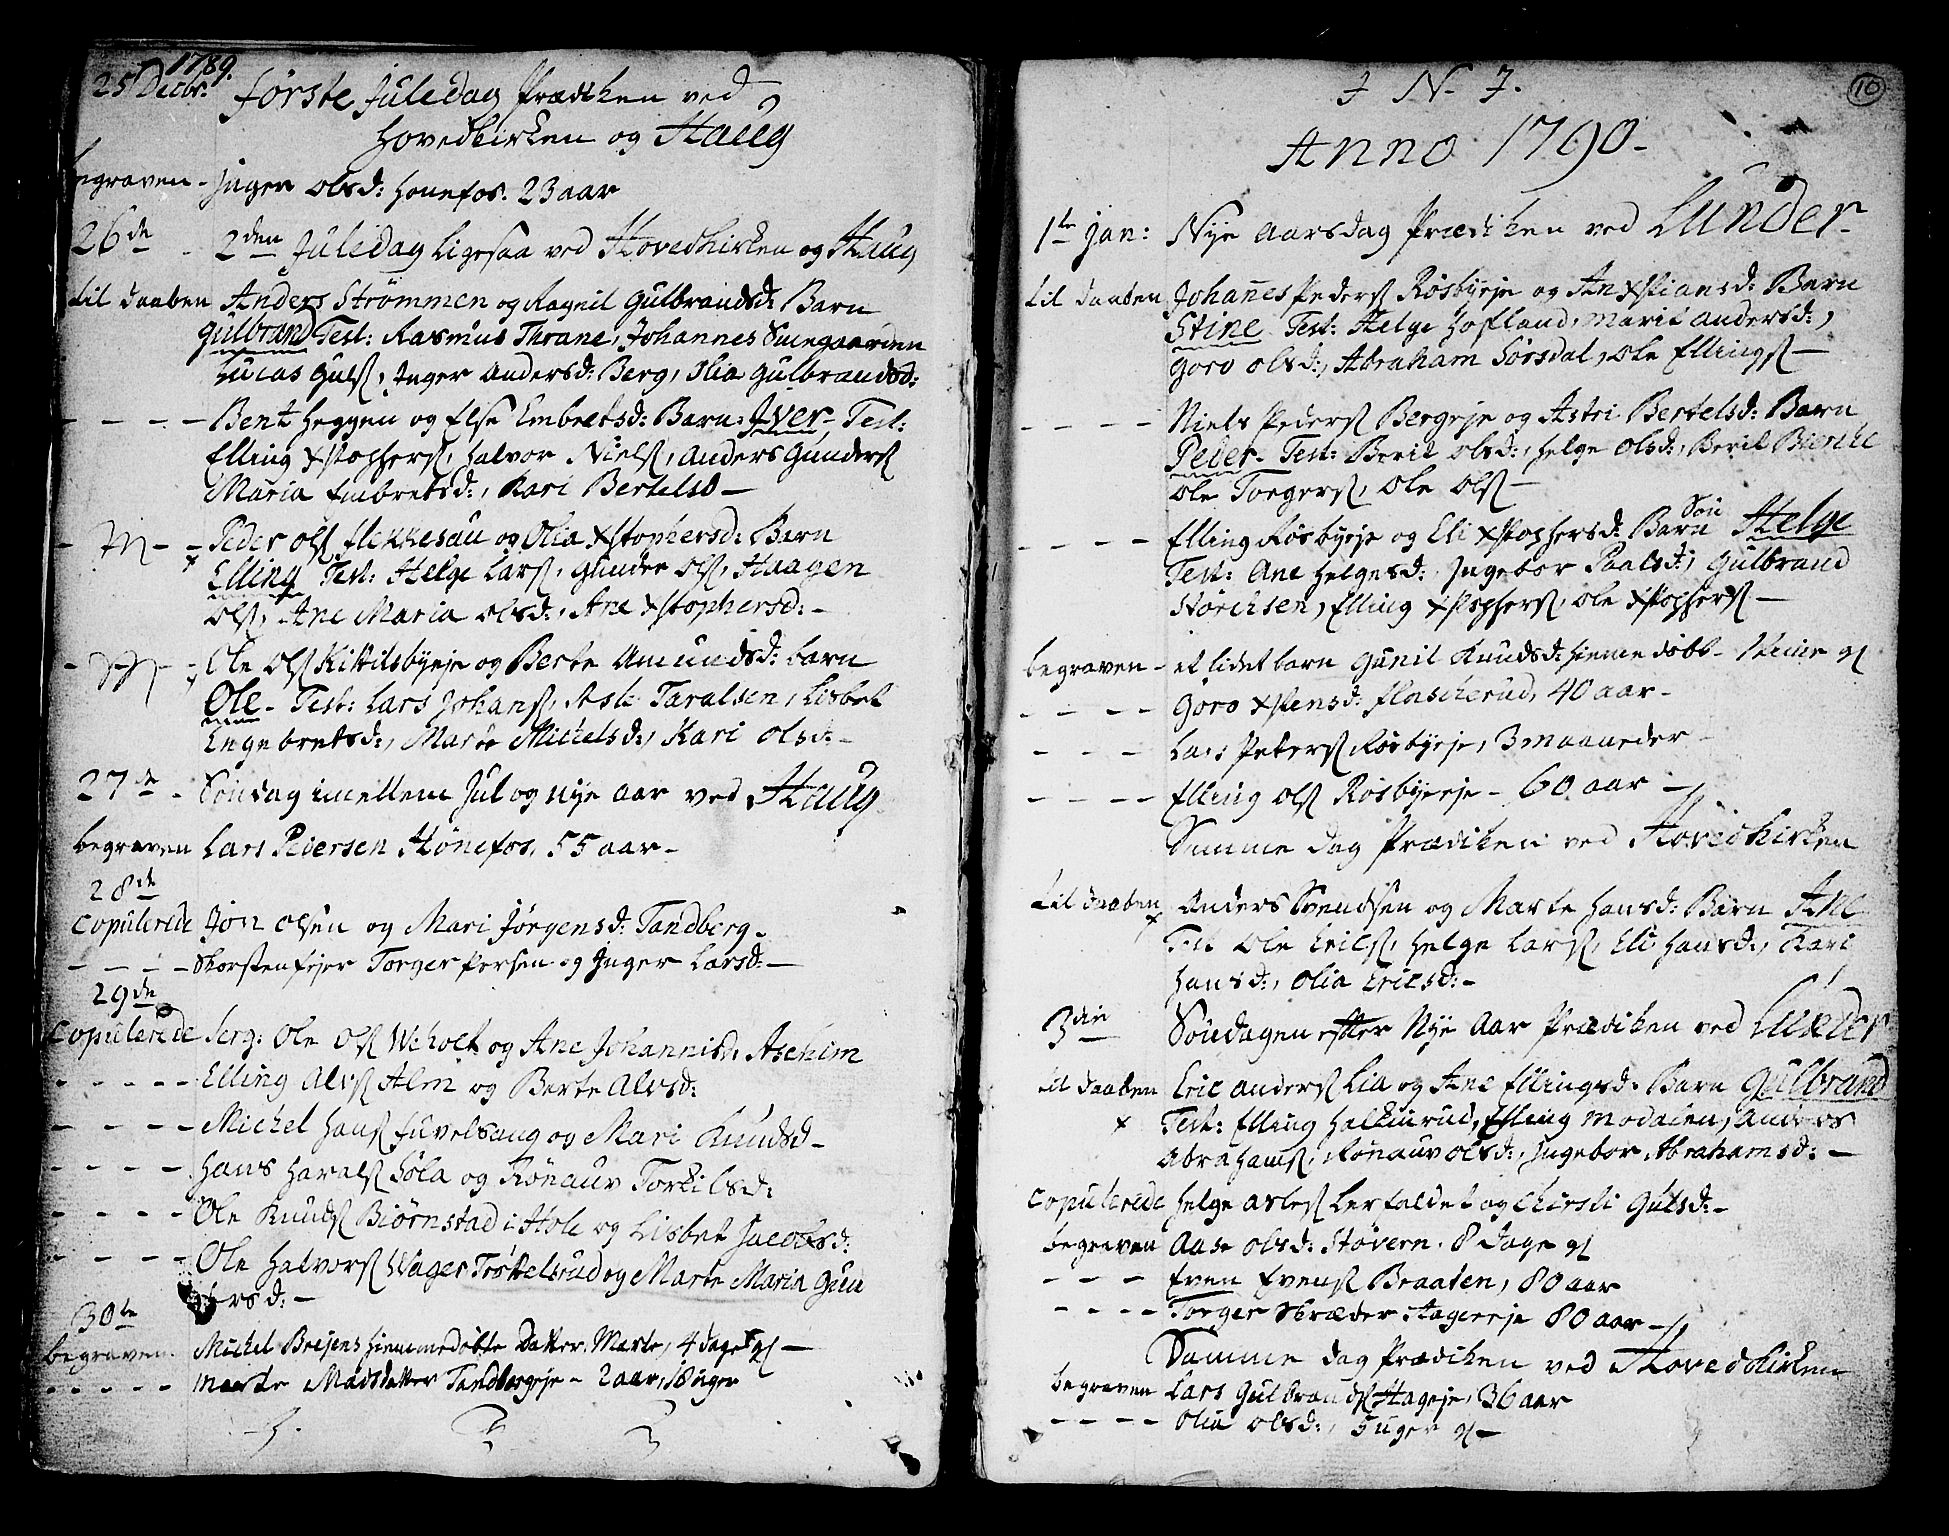 1789.
25 Decbr: første Juledag Prædiken ved
Hovedkirken og Haug
begraven - Inger Olsd: Honefos. 23 aar
26de - 2den Juledag Ligesaa ved Hovedkirken og Haug
til daaben Anders Strømmen og Ragnil Gulbrandsd: Barn
Gulbrand Test: Rasmus Thrane, Johannes
Lucas Guls, Inger Andersd: Berg, Olia Gulbrandsd:
- - - - Bent Heggen og Else Embretsd: Barn: Iver - Test:
Elling Xstophers, Halvor Niels, Anders Gunders
Maria Embretsd:, Kari Bertelsd -
- - - Peder Ols Flekkesau og Olia Xstophersd: Barn
Elling Test: Helge Lars, Gunder Ols, Haagen
Ols, Ane Maria Olsd:, Ane Xstophersd: -
- - - Ole Ols Kittilsbyeje og Berte Amundsd: barn
Ole - Test: Lars Johans, Taralsen, Lisbet
Engebretsd:, Marte Michelsd:, Kari Olsd: -
27de - Søndag imellem Jul og nye aar ved Haug
begraven Lars Pedersen Hönefos, 55 aar -
28de
copulerede Jon Olsen og Mari Jörgensd: Tandberg.
- - - - Skorstenfejer Torger Persen og Inger Larsd: -
29de
copulerede Serg: Ole Ols Weholt og Ane Johannisd: Aschim
- - - - - Elling Alvs Alm og Berte Alvsd:
- - - - Michel Hans Fuvelsang og Mari Knudsd -
- - - - Hans Harals Sola og Rönauv Torkilsd:
- - - - Ole Knuds Biørnstad i Hole og Lisbet Jacobsd:
- - - - Ole Halvors Wager Trøttelsrud og Marte Maria Gun
dersd: -
30te
begraven - Michel Breiens hiemmedöbte Datter. Marte, 4 dage gl -
- - - - - Marte Madsdatter Tandbergeje - 2 aar,
10
J N. J.
Anno 1790 -
1te Jan: Nye Aarsdag Prædiken ved Lunder -
til daaben Johannes Peders Rösbyeje og An Xstiansd: Barn
Stine Test: Helge Hofland, Marit Andersd:,
Goro Olsd:, Abraham Sörsdal, Ole Ellings -
- - - - Niels Peders Bergeje og Astri Bertelsd: Barn
Peder - Test: Berit Olsd:, Helge Olsd:, Beril Bierke
Ole Torgers, Ole Ols -
Sön
- - - - Elling Rösbyeje og Eli Xstophersd: Barn Helge
Test: Ane Helgesd:, Ingebor Paalsd:, Gulbrand
Störchsen, Elling Xstophers, Ole Xstophers -
begraven - et lidet barn Gunil Knudsd: hiemedöbt gl
- - - - Goro Xstensd: Flaskerud, 40 aar -
- - - Lars Peters Rösbyeje, 3 maaneder -
- - - - Elling Ols Rösbyeje - 60 aar -
Samme dag Prædiken ved Hovedkirken
til daaben Anders Svendsen og Marte Hansd: Barn Ane
Test Ole Erics, Helge Lars, Eli Hansd:, Kari
Hansd:, Olia Ericsd: -
3die Søndagen efter Nye Aar Prædiken ved Lunder
til daaben Eric Anders Lia og Ane Ellingsd: Barn Gulbrand
x Test: Elling Halkinrud, Elling Modalen, Anders
Abrahams, Rönauv Olsd:, Ingebor Abrahamsd: -
copulerede Helge Arnes Lerfaldet og Chirsti Gulsd: -
begraven Aase Olsd: Støvern. 8 dage gl
- - - Even Evens Braaten, 80 aar
- - - - Torger Skræder Hagereje 80 aar -
Samme dag Prædiken ved Hovedkirken
begraven Lars Gulbrands Hageje, 36 aar
- - - - Olia Olsd:, 5 uger gl -